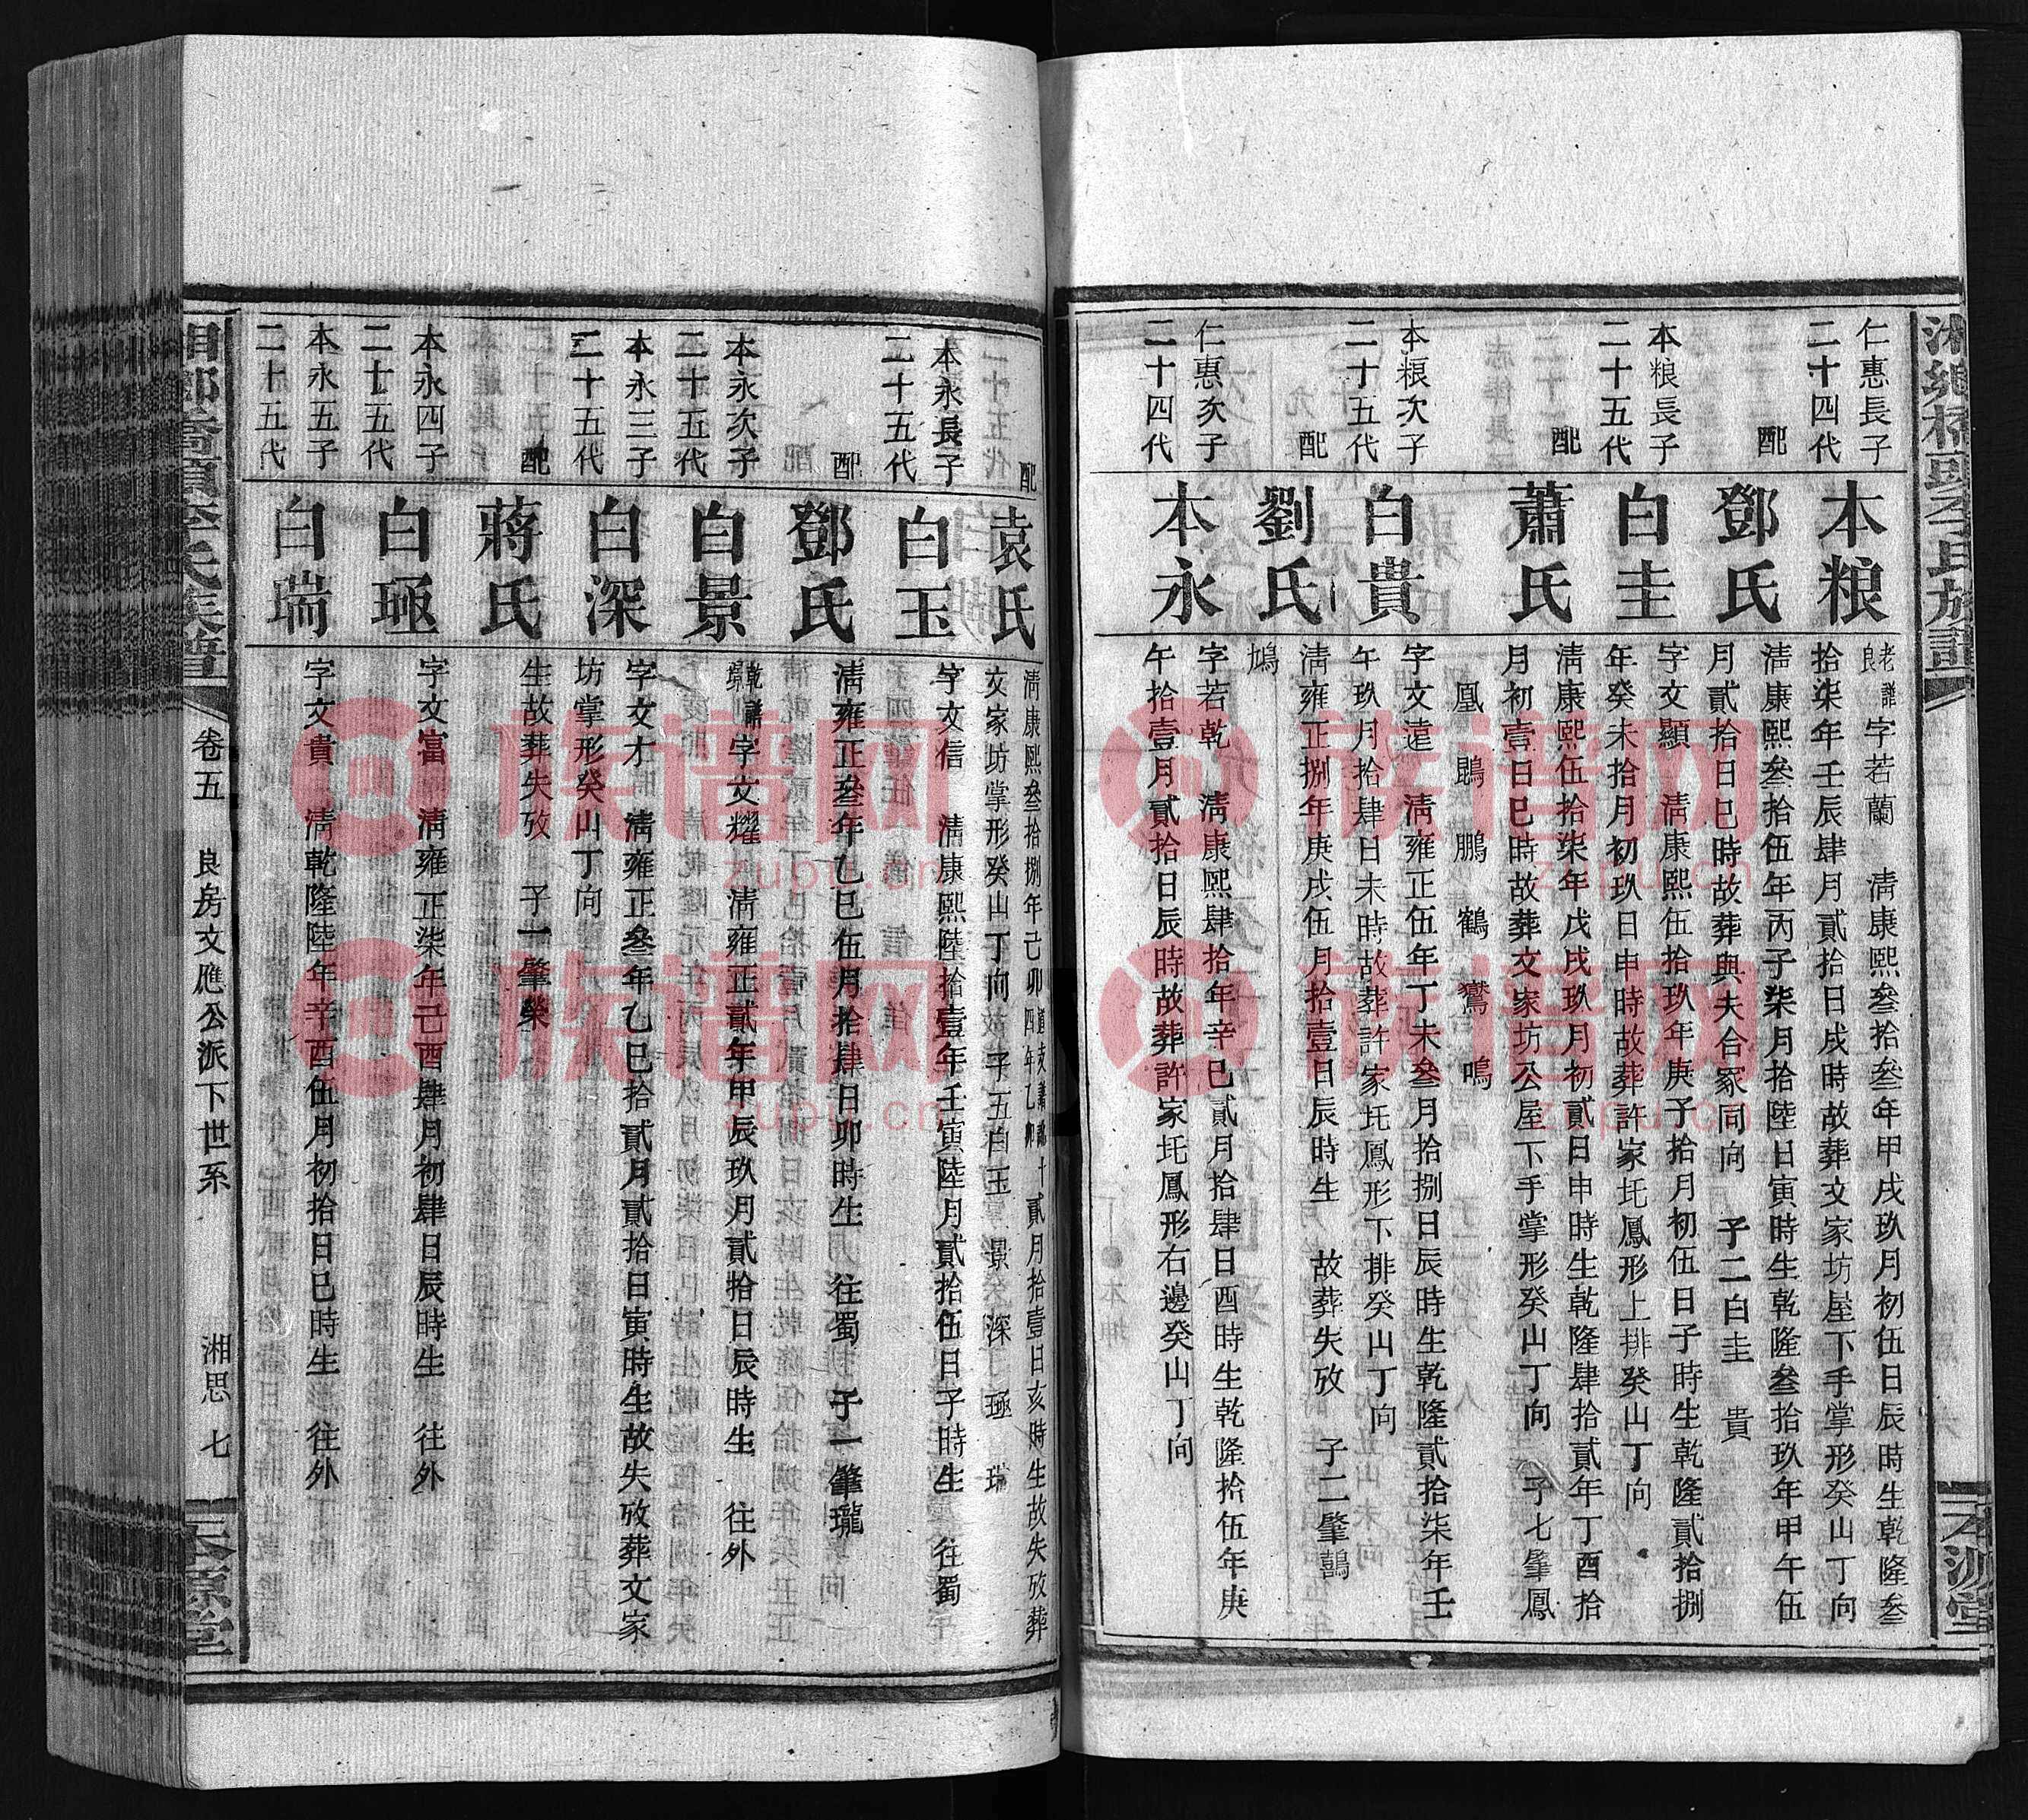 湘鄉橋頭李氏族譜
本源堂
仁惠長子
二十四代
本粮
老譜字若蘭 清康熙叁拾叁年甲戌玖月初伍日辰時生乾隆叁
良
拾柒年壬辰肆月貳拾日戌時故葬文家坊屋下手掌形癸山丁向
配
鄧氏
清康熙叁拾伍年丙子柒月拾陸日寅時生乾隆叁拾玖年甲午伍
月貳拾日巳時故葬與夫合冢同向 子二白圭 貴
本粮長子
二十五代
白圭
字文顯 清康熙伍拾玖年庚子拾月初伍日子時生乾隆貳拾捌
年癸未拾月初玖日申時故葬許家圫鳳形上排癸山丁向
配
蕭氏
清康熙伍拾柒年戊戌玖月初貳日申時生乾隆肆拾貳年丁酉拾
月初壹日巳時故葬文家坊公屋下手掌形癸山丁向 子七肇鳳
凰 鵾 鵬 鶴 鸞 鳴
本粮次子
二十五代
白貴
字文遠 清雍正伍年丁未叁月拾捌日辰時生乾隆貳拾柒年壬
午玖月拾肆日未時故葬許家圫鳳形下排癸山丁向
配
劉氏
清雍正捌年庚戌伍月拾壹日辰時生 故葬失攷 子二肇鵲
鳩
仁惠次子
二十四代
本永
字若乾 清康熙肆拾年辛巳貳月拾肆日酉時生乾隆拾伍年庚
午拾壹月貳拾日辰時故葬許家圫鳳形右邊癸山丁向
配
袁氏
清康熙叁拾捌年己卯 十貳月拾壹日亥時生故失攷葬
文家坊掌形癸山丁向 子五白玉 景 深 珽 瑞
本永長子
二十五代
白玉
字文信 清康熙陸拾壹年壬寅陸月貳拾伍日子時生 往蜀
配
鄧氏
清雍正叁年乙巳伍月拾肆日卯時生 往蜀 子一肇瓏
本永次子
二十五代
白景
乾譜字文耀 清雍正貳年甲辰玖月貳拾日辰時生 往外
本永三子
二十五代
白深
字文才 清雍正叁年乙巳拾貳月貳拾日寅時生故失攷葬文家
坊掌形癸山丁向
配
蔣氏
生故葬失攷 子一肇榮
本永四子
二十五代
白珽
字文富 清雍正柒年己酉肆月初肆日辰時生 往外
本永五子
二十五代
白瑞
字文貴 清乾隆陸年辛酉伍月初拾日巳時生 往外
湘鄉橋頭李氏族譜
卷五 良房文應公派下世系 湘思 七
本源堂
族谱网
zupu.cn
族谱网
zupu.cn
族谱网
zupu.cn
族谱网
zupu.cn